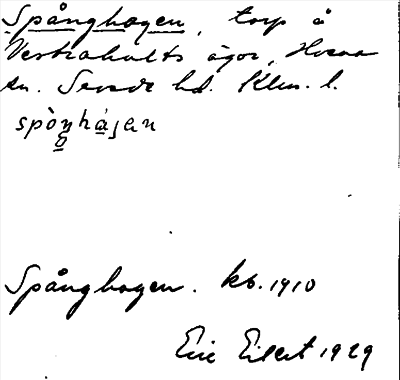 Spånghagen, torp å
Vestrahults ägor, Hvena
sn. Sevede hd. Klm. l.
spòŋhá̱jen
Spånghagen. kb. 1910
Eric Eilert 1929